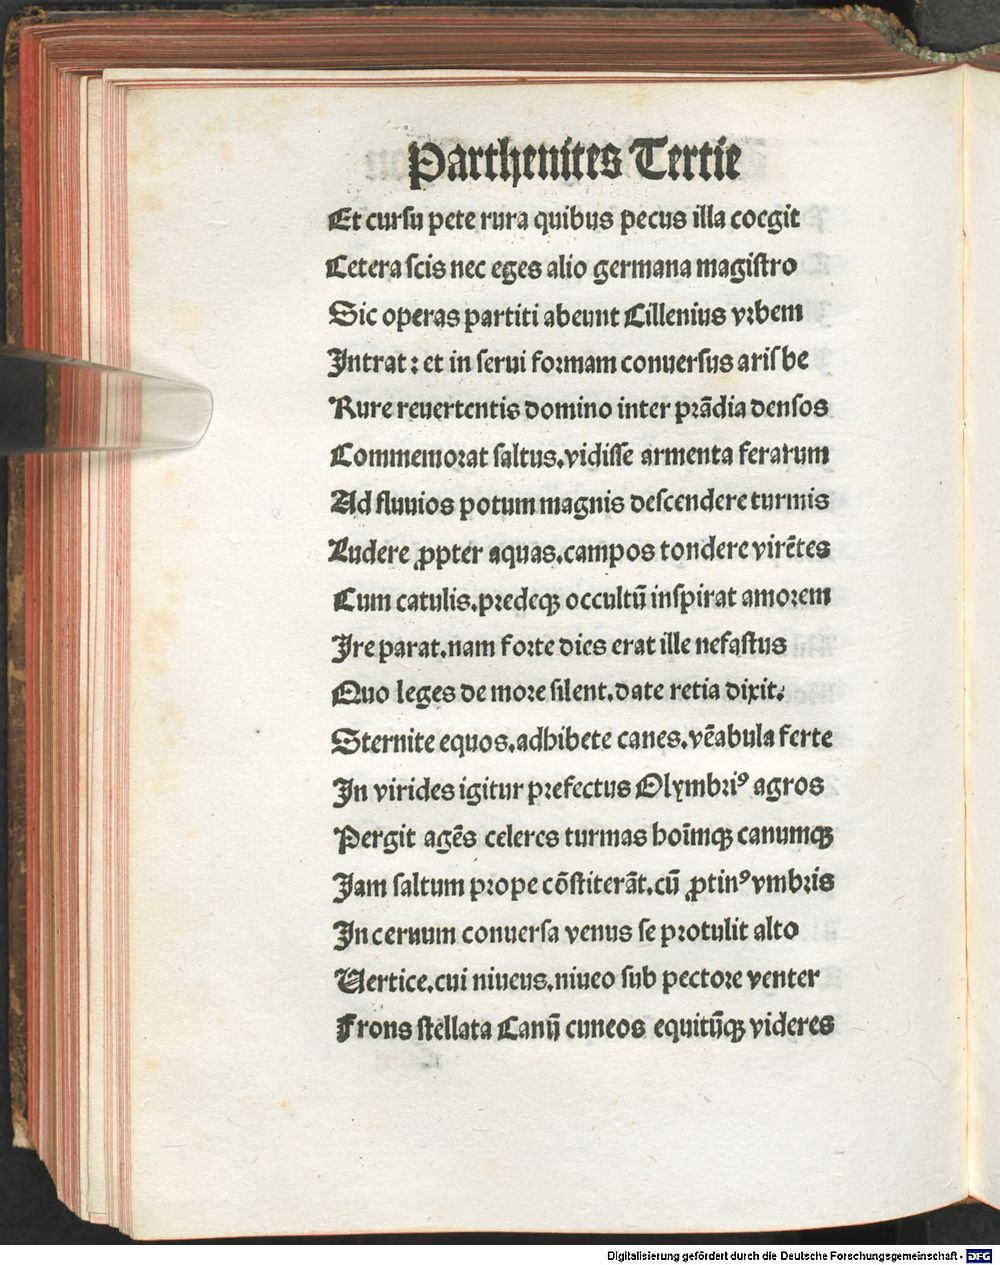 Parthenites Tertie
Et cursu pete rura quibus pecus illa coegit
Cetera scis nec eges alio germana magistro
Sic operas partiti abeunt Cillenius vrbem
Intrat: et in serui formam conuersus arisbe
Rure reuertentis domino inter prãdia densos
Commemorat saltus.vidisse armenta ferarum
Ad fluuios potum magnis descendere turmis
Ludere ꝓpter aquas.campos tondere virẽtes
Cum catulis.predeqꝫ occultũ inspirat amorem
Ire parat.nam forte dies erat ille nefastus
Quo leges de more silent.date retia dixit.
Sternite equos.adhibete canes.vẽabula ferte
In virides igitur prefectus Olymbriꝰ agros
Pergit agẽs celeres turmas hoĩmqꝫ canumqꝫ
Jam saltum prope cõstiterãt.cũ ꝓtinꝰ vmbris
In ceruum conuersa venus se protulit alto
Uertice.cui niueus.niueo sub pectore venter
Frons stellata Canũ cuneos equitũqꝫ videres
Digitalisierung gefördert durch die Deutsche Forschungsgemeinschaft - DFG